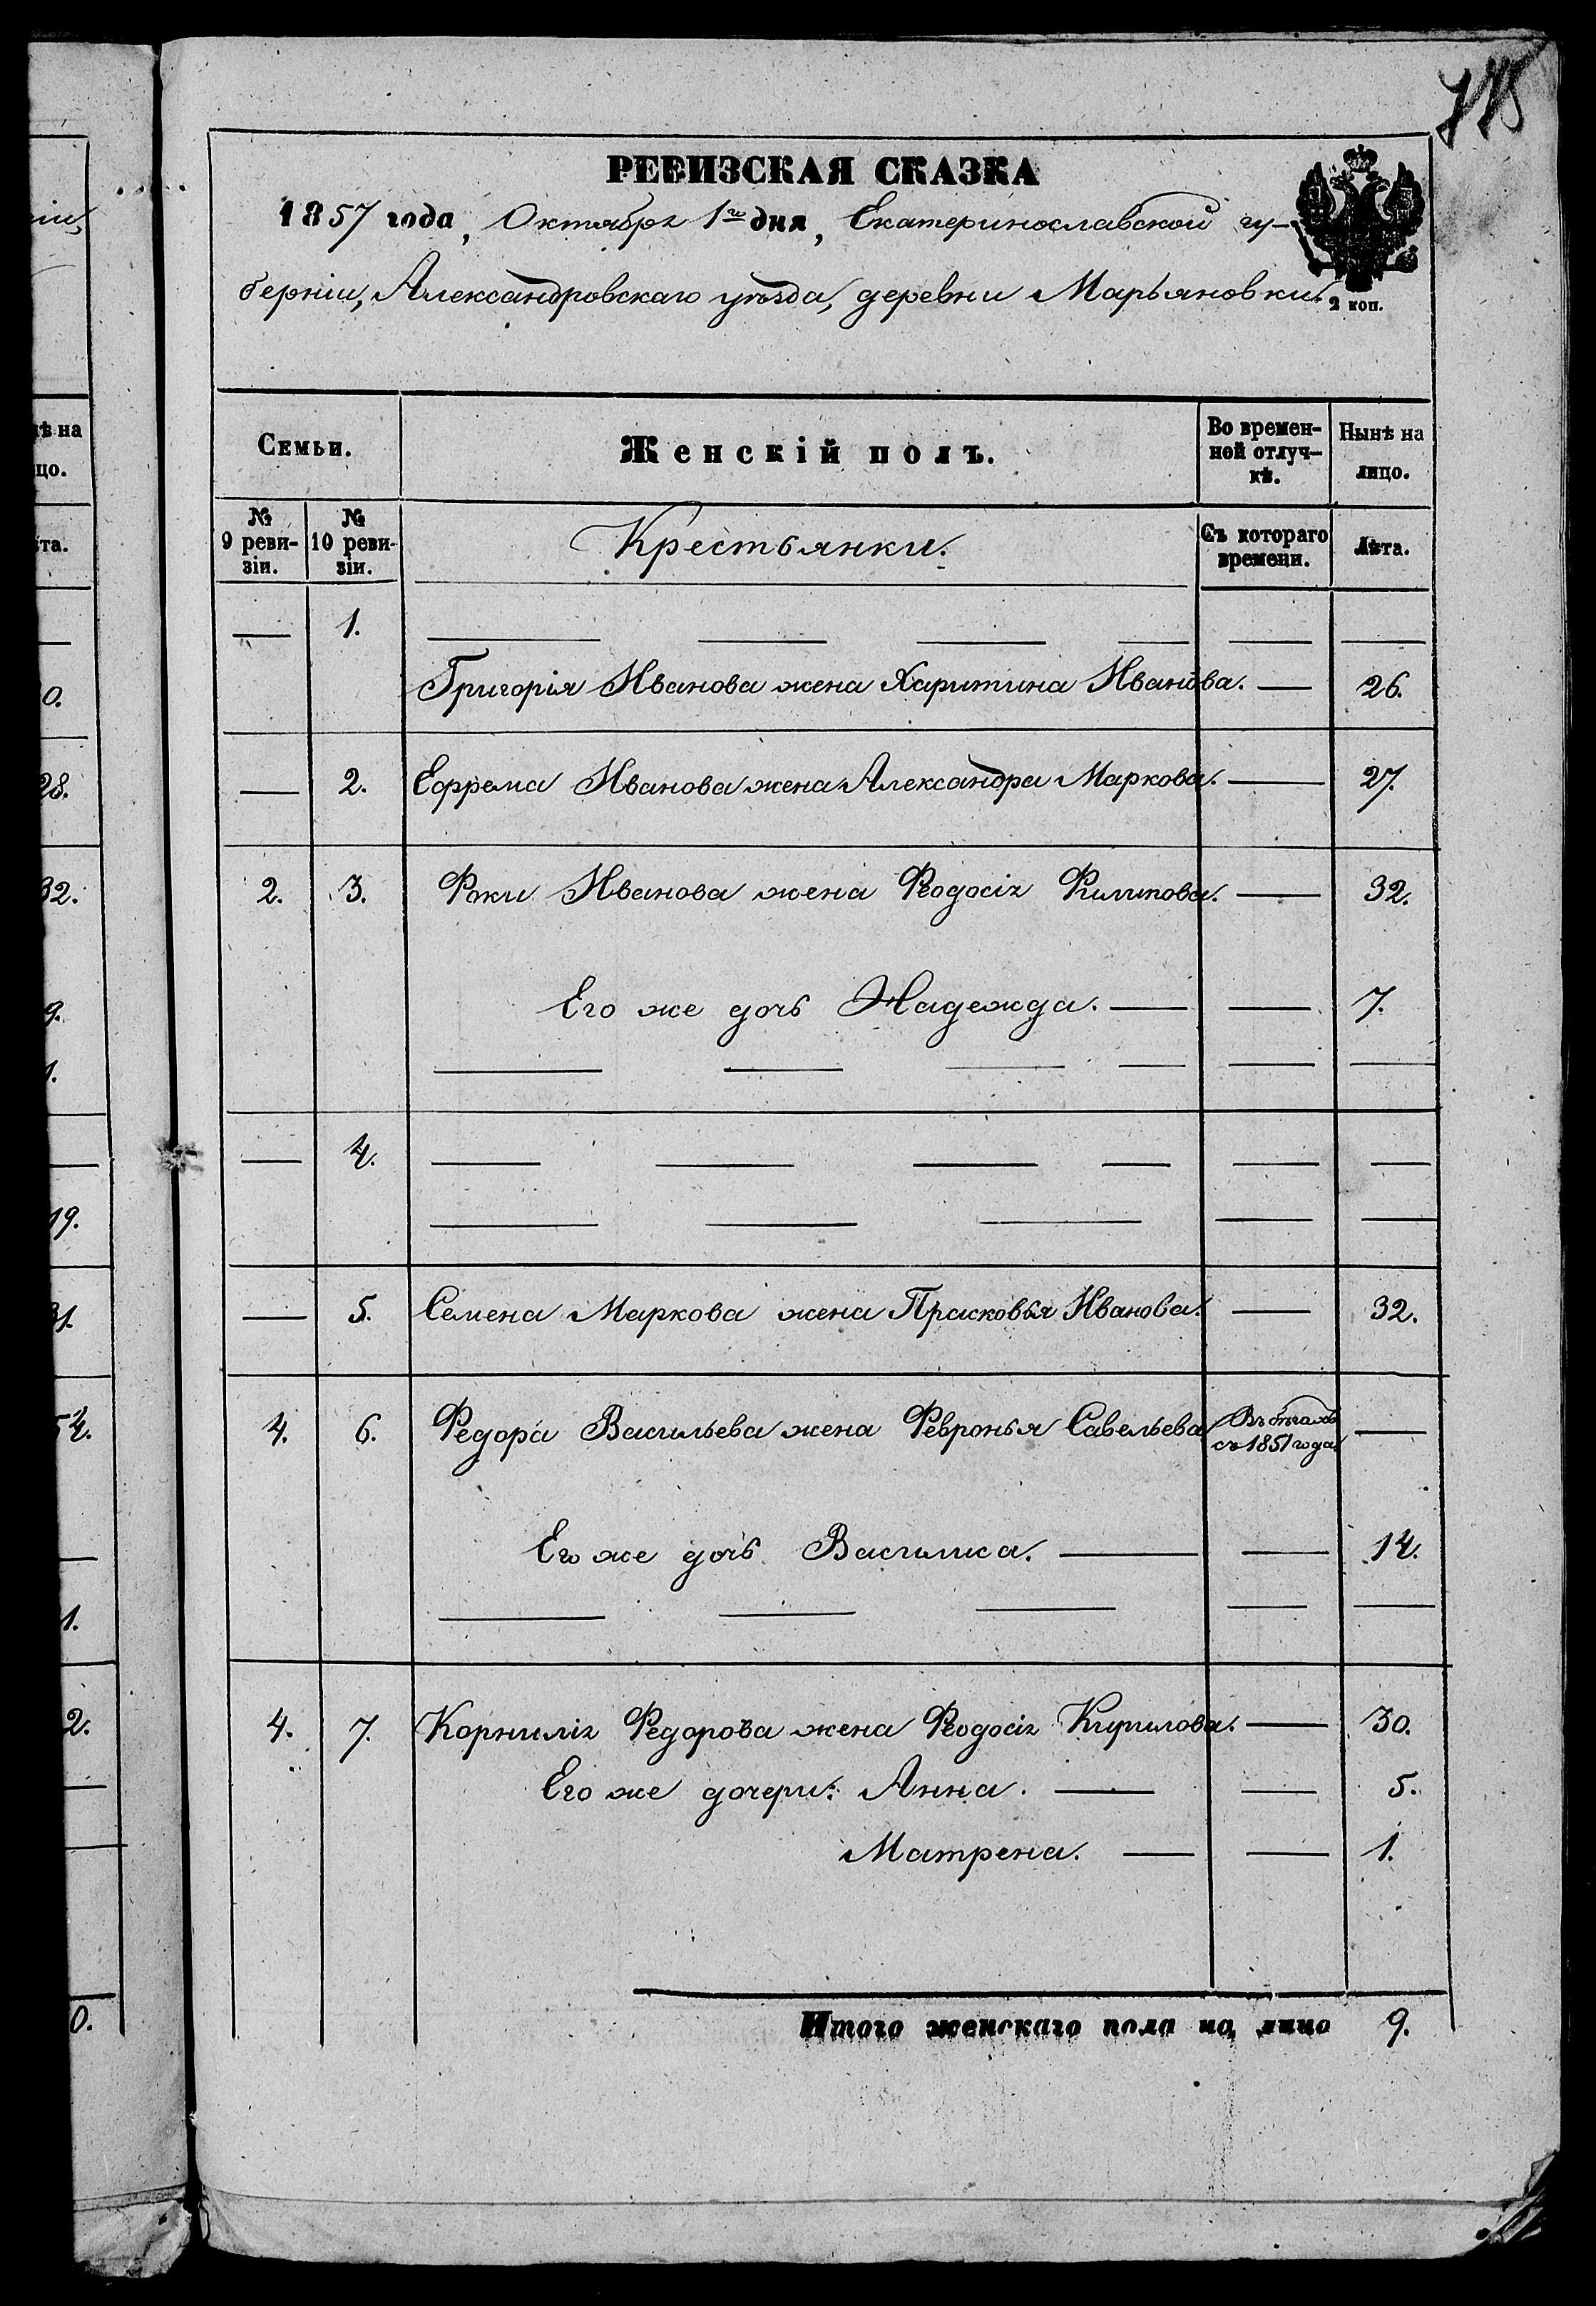 775
РЕВИЗСКАЯ СКАЗКА
1857 года, Октября 1го дня, Екатеринославской гу-
берніи, Александровскаго уѣзда, деревни Марьяновки.
2 коп.
Семьи.
Женскій полъ.
Во времен-
ной отлуч-
кѣ.
Нынѣ на
лицо.
№
9 реви-
зіи.
№
10 реви-
зіи.
Крестьянки.
Съ котораго
времени.
Лѣта.
— 1. — — — — — —
Григорія Иванова жена Харитина Иванова. — 26.
— 2. Ефрема Иванова жена Александра Маркова. — 27.
2. 3. Фоки Иванова жена Феодосія Филипова. — 32.
Его же дочь Надежда. — — 7.
— — — — — —
— 4. — — — — — —
— — — — —
— 5. Семена Маркова жена Прасковья Иванова. — 32.
4. 6. Федора Васильева жена Февронья Савельева Въ бѣгахъ —
съ 1851 года.
Его же дочь Василиса. — — 14.
— — — — —
4. 7. Корнилія Федорова жена Феодосія Кирилова. — 30.
Его же дочери: Анна. — — 5.
Матрена. — — 1.
Итого женскаго пола на лицо 9.
ніи,
нѣ на
цо.
ѣта.
0.
28.
32.
9.
1.
19.
31.
54.
1.
2.
0.